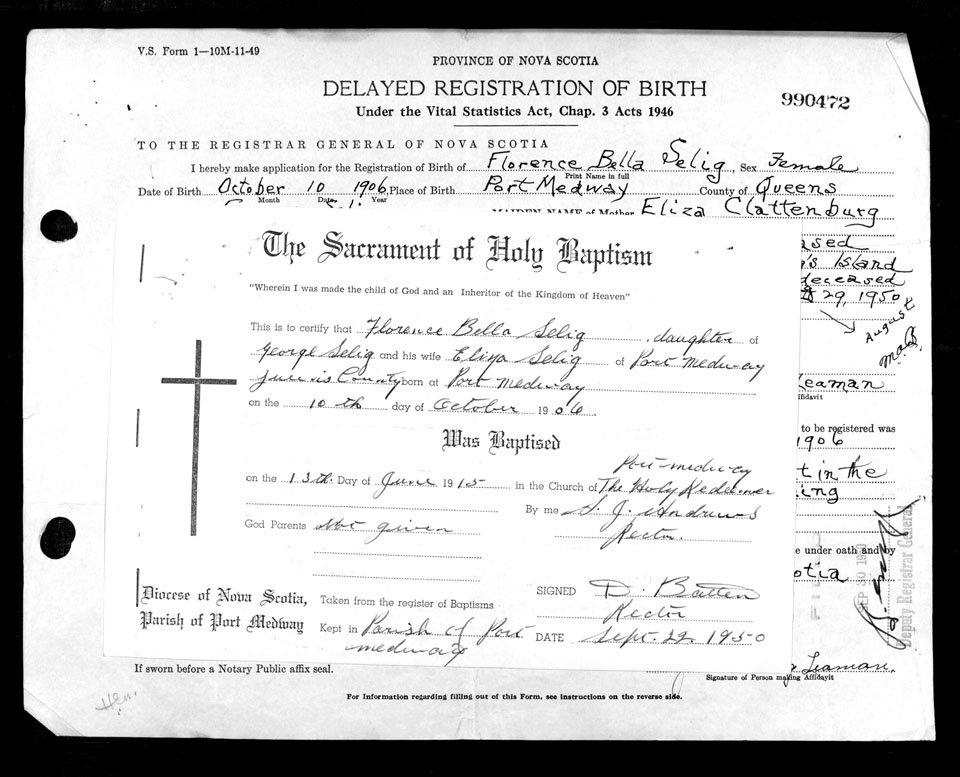 V.S. Form 1—10M-11-49
PROVINCE OF NOVA SCOTIA
DELAYED REGISTRATION OF BIRTH
990472
Under the Vital Statistics Act, Chap. 3 Acts 1946
TO THE REGISTRAR GENERAL OF NOVA SCOTIA
I hereby make application for the Registration of Birth of Florence Bella Selig, Sex Female
Print Name in full
Date of Birth October 10 1906, Place of Birth Port Medway County of Queens
Month Date Year
MAIDEN NAME of Mother Eliza Clattenburg
ased
's Island
deceased
29, 1950
August
The Sacrament of Holy Baptism
"Wherein I was made the child of God and an Inheritor of the Kingdom of Heaven"
This is to certify that Florence Bella Selig, daughter of
George Selig and his wife Eliza Selig of Port Medway
County born at Port Medway
on the 10th day of October 1906.
Was Baptised
Port Medway
on the 13th Day of June 1915 in the Church of The Holy Redeemer
By me S. J. Andrews
Rector.
God Parents Not given
SIGNED D. Batten
Rector
Diocese of Nova Scotia,
Parish of Port Medway
Taken from the register of Baptisms
Kept in Parish of Port Medway
DATE Sept. 22, 1950
Leaman
ffidavit
to be registered was
1906
t in the
ing
e under oath and by
otia
SEP 30 1950
Deputy Registrar General
Leaman.
Signature of Person making Affidavit
If sworn before a Notary Public affix seal.
For Information regarding filling out of this Form, see instructions on the reverse side.